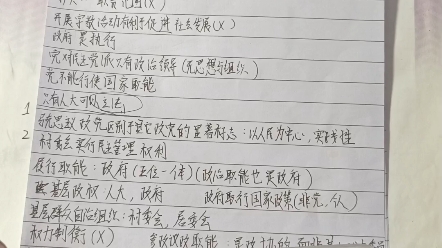 职责范围(X)
开展宗教活动有利于促进社会发展(X)
政府是执行
党对民主党派只有政治领导(无思想与组织)
党不能行使国家职能
只有人大可以立法
1 马克思政党区别于其它政党的显著标志:以人民为中心,实践性
2 村委会实行民主管理权利
履行职能:政府(五位一体)(政治职能也是政府)
基层政权:人大,政府 政府取行国家政策(非党、人)
基层群众自治组织:村委会,居委会
权力制衡(X) 参政议政职能:是政协的